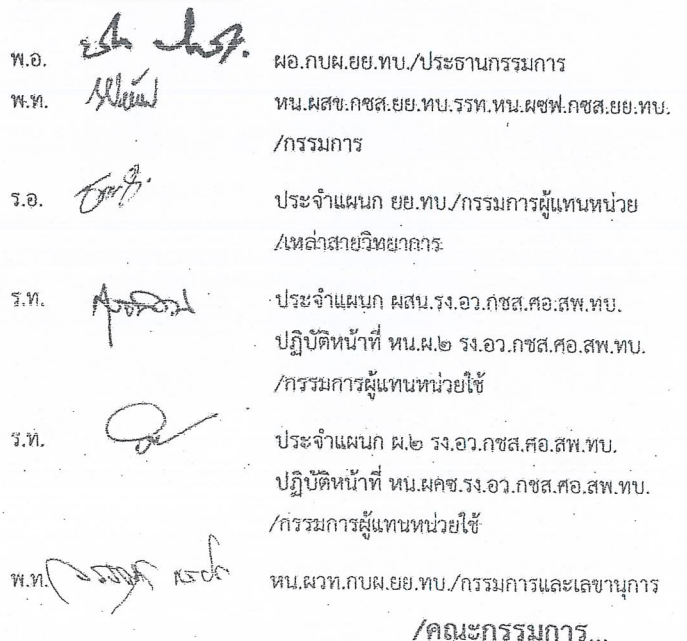 พ.อ. ผอ.กบผ.ยย.ทบ./ประธานกรรมการ
พ.ท. หน.ผสข.กซส.ยย.ทบ.รรท.หน.ผซฟ.กซส.ยย.ทบ.
/กรรมการ
ร.อ. ประจำแผนก ยย.ทบ./กรรมการผู้แทนหน่วย
/เหล่าสายวิทยาการ
ร.ท. ประจำแผนก ผสน.รง.อว.กซส.ศอ.สพ.ทบ.
ปฏิบัติหน้าที่ หน.ผ.๒ รง.อว.กซส.ศอ.สพ.ทบ.
/กรรมการผู้แทนหน่วยใช้
ร.ท. ประจำแผนก ผ.๒ รง.อว.กซส.ศอ.สพ.ทบ.
ปฏิบัติหน้าที่ หน.ผคซ.รง.อว.กซส.ศอ.สพ.ทบ.
/กรรมการผู้แทนหน่วยใช้
พ.ท. หน.ผวท.กบผ.ยย.ทบ./กรรมการและเลขานุการ
/คณะกรรมการ...